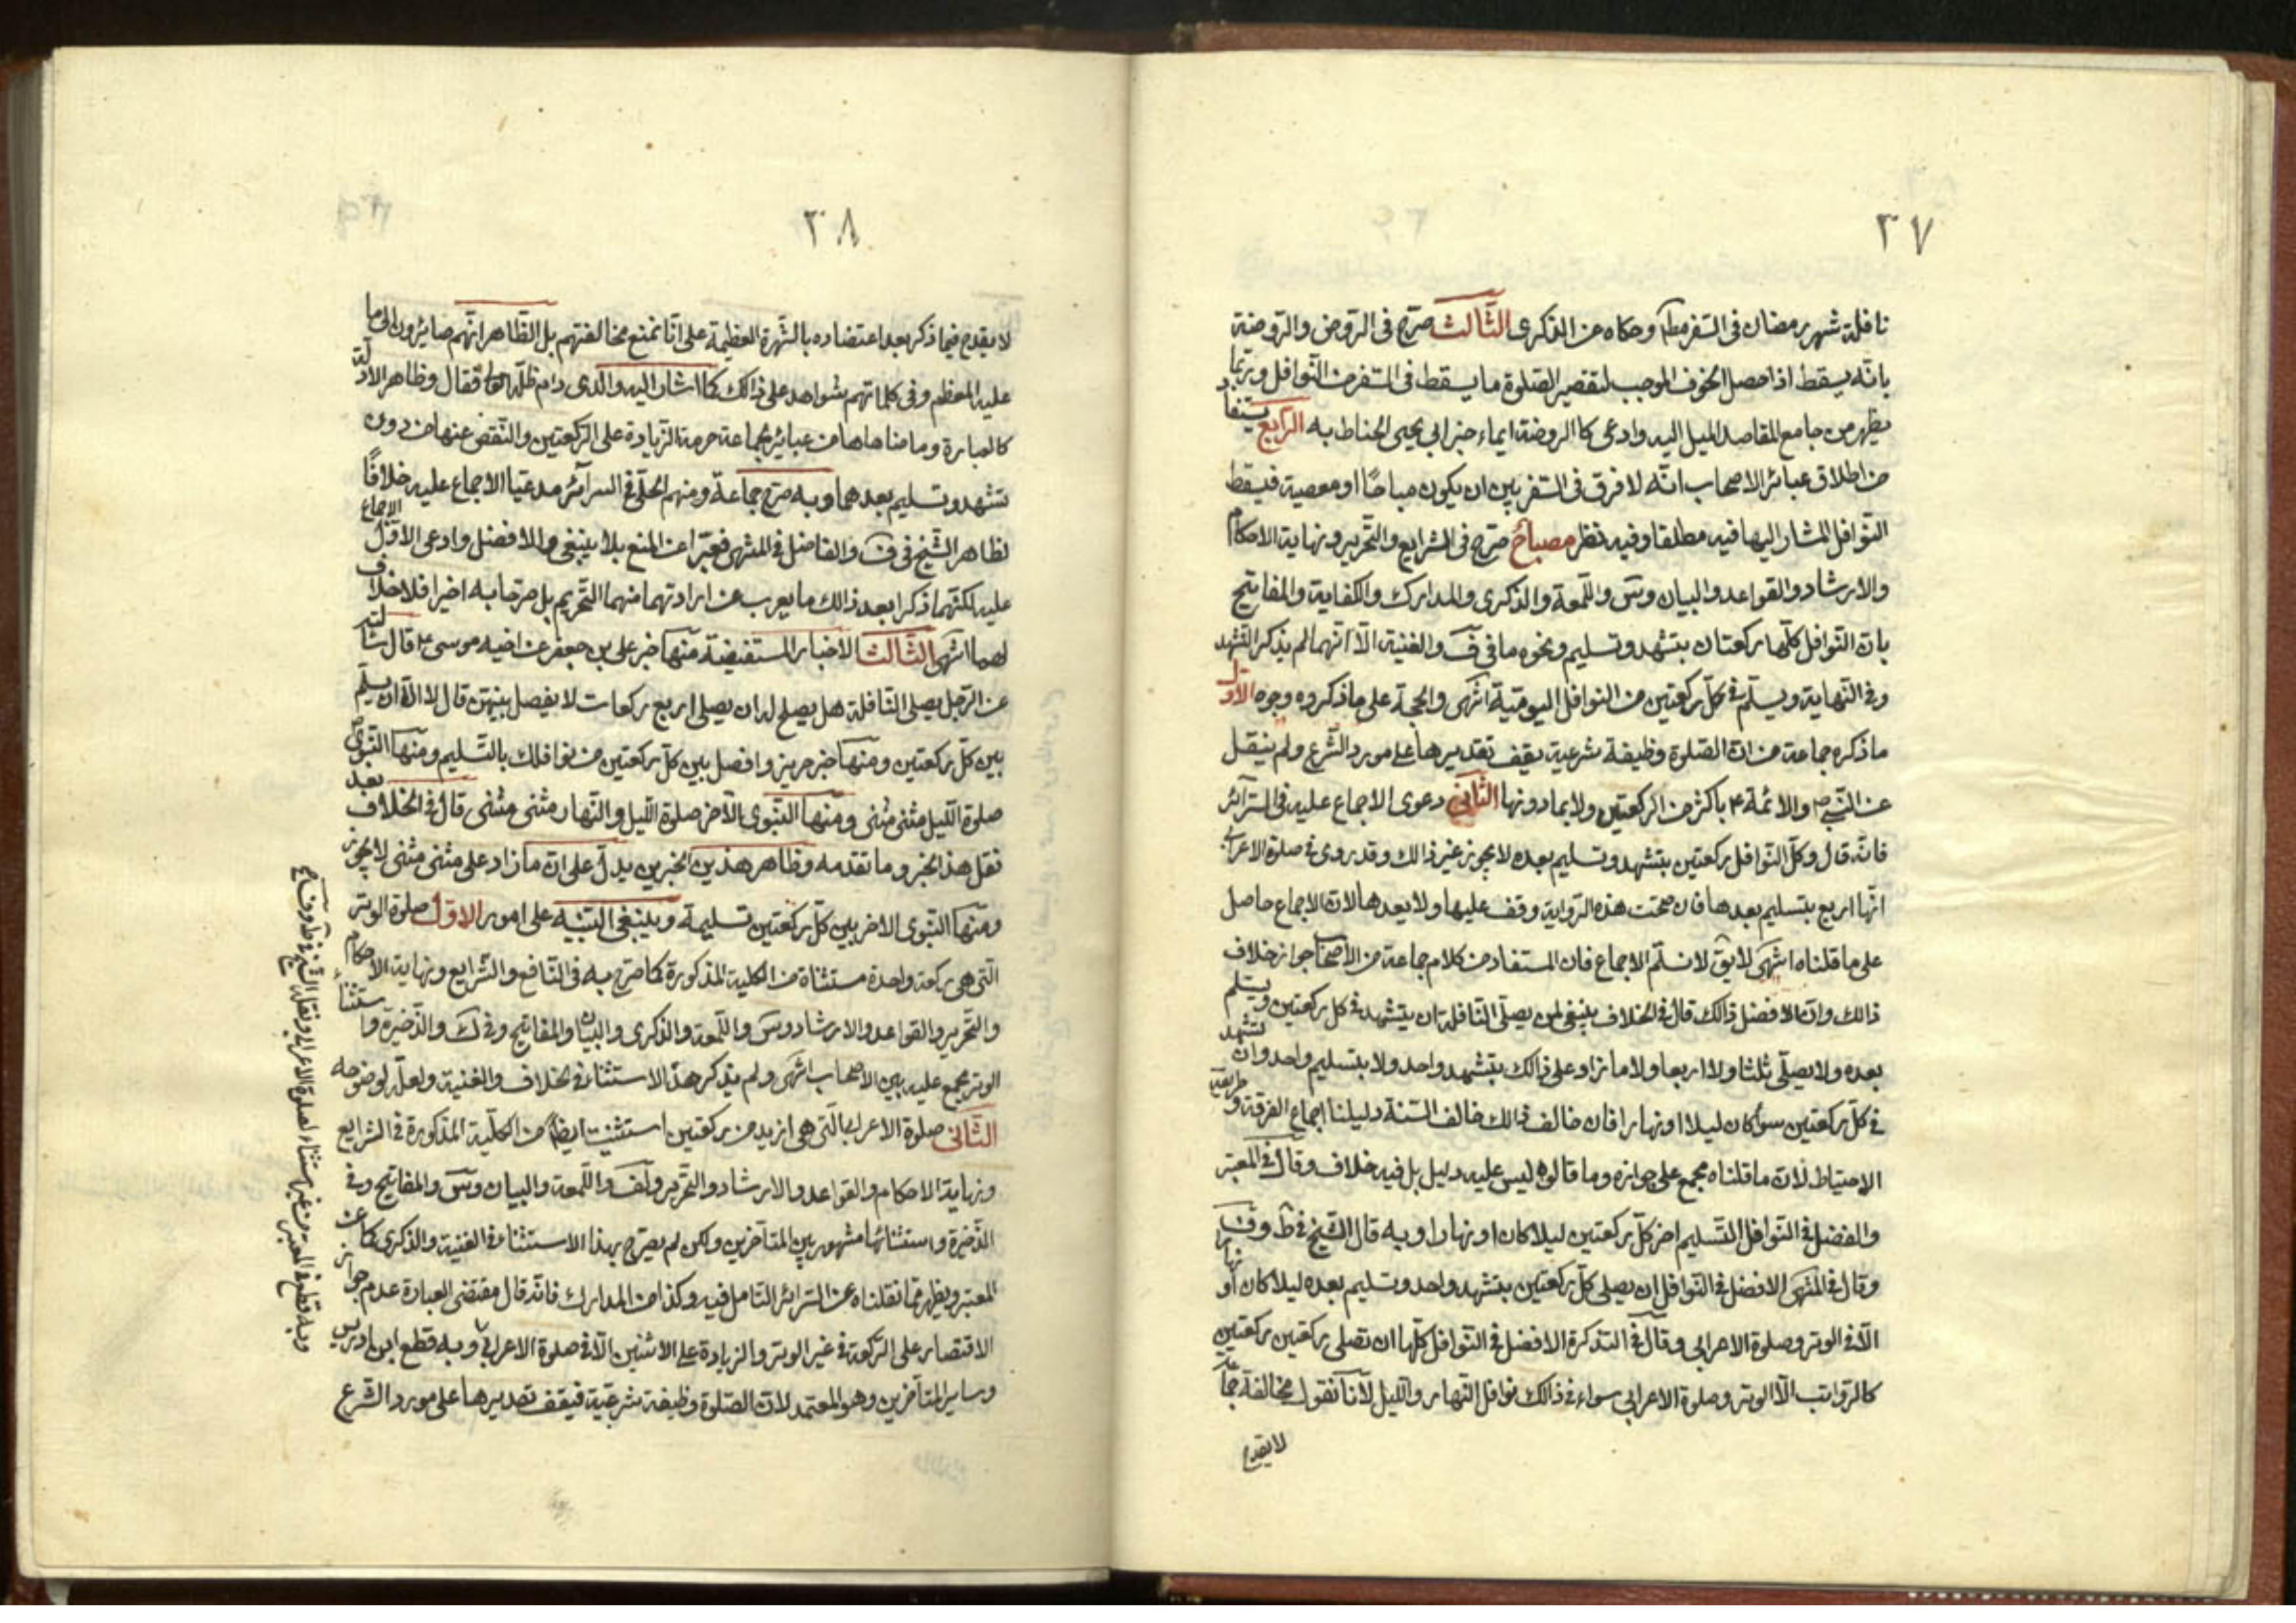 ٣٧
نافلة شهر رمضان فى السفر مطلقا وحكاه عن الذكرى الثالث صرّح فى الروض والروضة
بانّه يسقط اذا حصل الخوف الموجب لتقصير الصّلوة ما يسقط فى السّفر من النّوافل وربّما
يظهر من جامع المقاصد الميل اليه وادعى كا الروضة ايماء خبر ابي يحيى الحناط به الرّابع يستفاد
من اطلاق عبائر الاصحاب انّه لا فرق فى السّفر بين ان يكون مباحًا او معصية فيسقط
النّوافل المشار اليها فيه مطلقا وفيه نظر مصباحٌ صرّح فى الشرايع والتّحرير ونهاية الاحكام
والارشاد والقواعد والبيان وس واللّمعة والذكرى والمدارك والكفاية والمفاتيح
بانّ النّوافل كلّها ركعتان بتشهد وتسليم ونحوه ما فى ف والغنية الّا انّهما لم يذكرا التشهد
وفى النّهاية ويسلّم فى كلّ ركعتين من النوافل اليوميّة انتهى والحجة على ما ذكروه وجوه الاوّل
ما ذكره جماعة من انّ الصّلوة وظيفة شرعية يقف تقديرها على مورد الشّرع ولم ينقل
عن النّبي ص والائمة ع باكثر من الركعتين ولا بما دونها الثّانى دعوى الاجماع عليه فى السّرائر
فانّه قال وكلّ النّوافل ركعتين بتشهد وتسليم بعده لا يجوز غير ذالك وقد روى فى صلوة الاعرابى
انّها اربع بتسليم بعدها فان صحّت هذه الرّواية وقف عليها ولا يعدها لانّ الاجماع حاصل
على ما قلناه انتهى لا يق لا نسلّم الاجماع فان المستفاد من كلام جماعة من الاصحاب جواز خلاف
ذالك وانّ الافضل ذالك قال فى الخلاف ينبغى لمن يصلّى النّافلة ان يتشهد فى كل ركعتين ويسلم
بعده ولا يصلّى ثلثا ولا اربعا ولا ما زاد على ذالك بتشهد واحد ولا بتسليم واحد وان يتشهد
فى كلّ ركعتين سواء كان ليلا او نهارا فان خالف ذالك خالف السّنة دليلنا اجماع الفرقة وطريقة
الاحتياط لانّ ما قلناه مجمع على جوازه وما قالوه ليس عليه دليل بل فيه خلاف وقال فى المعتبر
والفضل فى النّوافل التّسليم اخر كلّ ركعتين ليلا كان او نهارا وبه قال الشّيخ فى ط وف
وقال فى المنتهى الافضل فى النّوافل ان يصلى كلّ ركعتين بتشهد واحد وتسليم بعده ليلا كان او نهارا
الّا فى الوتر وصلوة الاعرابى وقال فى التذكرة الافضل فى النّوافل كلّها ان تصلى ركعتين ركعتين
كالرّواتب الّا الوتر وصلوة الاعرابى سواء فى ذالك نوافل النّهار والليل لأنّا نقول مخالفة جماعة
لا يقدح
٣٨
لا يقدح فيما ذكر بعد اعتضاده بالشّهرة العظيمة على انّا نمنع مخالفتهم بل الظّاهر انّهم صايرون الى ما
عليه المعظم وفى كلماتهم شواهد على ذالك كما اشار اليه والدى دام ظلّه فقال وظاهر الادلّة
كالعبارة وما ضاهاها من عبائر جماعة حرمة الزّيادة على الرّكعتين والنّقص عنها من دون
تشهد وتسليم بعدهما وبه صرّح جماعة ومنهم الحلّى فى السرآئر مدعيا الاجماع عليه خلافًا
لظاهر الشّيخ فى ف والفاضل فى المنتهى فعبّرا عن المنع بلا ينبغى والافضل وادعى الاوّل الاجماع
عليه لكنّهما ذكرا بعد ذالك ما يعرب عن ارادتهما منهما التّحريم بل صرّحا به اخيرا فلا خلاف
لهما انتهى الثّالث الاخبار المستفيضة منها خبر على بن جعفر عن اخيه موسى ع قال سئلته
عن الرّجل يصلى النّافلة هل يصلح له ان يصلى اربع ركعات لا يفصل بينهنّ قال لا الّا ان يسلّم
بين كلّ ركعتين ومنها خبر حريز وافصل بين كلّ ركعتين من نوافلك بالتّسليم ومنها النّبوىّ
صلوة اللّيل مثنى مثنى ومنها النّبوى الآخر صلوة اللّيل والنّهار مثنى مثنى قال فى الخلاف بعد
نقل هذا الخبر وما تقدمه وظاهر هذين الخبرين يدلّ على انّ ما زاد على مثنى مثنى لا يجوز
ومنها النّبوى الاخر بين كلّ ركعتين تسليمة وينبغى التّنبيه على امور الاوّل صلوة الوتر
الّتى هى ركعة واحدة مستثناة من الكلية المذكورة كما صرّح به فى النّافع والشّرايع ونهاية الاحكام
والتّحرير والقواعد والارشاد وس واللّمعة والذكرى والبيان والمفاتيح وفى ك والذّخيرة واستثناء
الوتر مجمع عليه بين الاصحاب انتهى ولم يذكر هذا الاستثناء فى الخلاف والغنية ولعلّه لوضوحه
الثّانى صلوة الاعرابى الّتى هى ازيد من ركعتين استثنيت ايضا من الكلّية المذكورة فى الشرايع
ونهاية الاحكام والقواعد والارشاد والتّحرير واللّمعة والبيان وس والمفاتيح وفى
الذّخيرة واستثنائها مشهور بين المتأخرين ولكن لم يصرّح بهذا الاستثناء فى الغنية والذكرى كما عن
المعتبر ويظهر ممّا نقلناه عن السّرائر التامل فيه وكذا من المدارك فانّه قال مقتضى العبارة عدم جواز
الاقتصار على الرّكعة فى غير الوتر والزيادة على الاثنين الّا فى صلوة الاعرابى وبه قطع ابن ادريس
وساير المتأخرين وهو المعتمد لانّ الصّلوة وظيفة شرعيّة فيقف تقديرها على مورد الشّرع
وبه قطع فى المعتبر من غير استثناء لصلوة الاعرابى ونقله الشّيخ فى ط وف